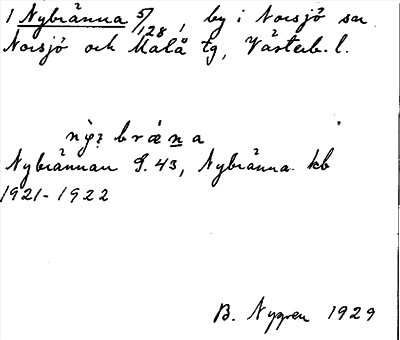 1 Nybränna 5/128, by i Norsjö sn
Norsjö och Malå tg, Västerb. l.
bræna
Nybrännan G. 43, Nybränna kb
1921-1922
B. Nygren 1929